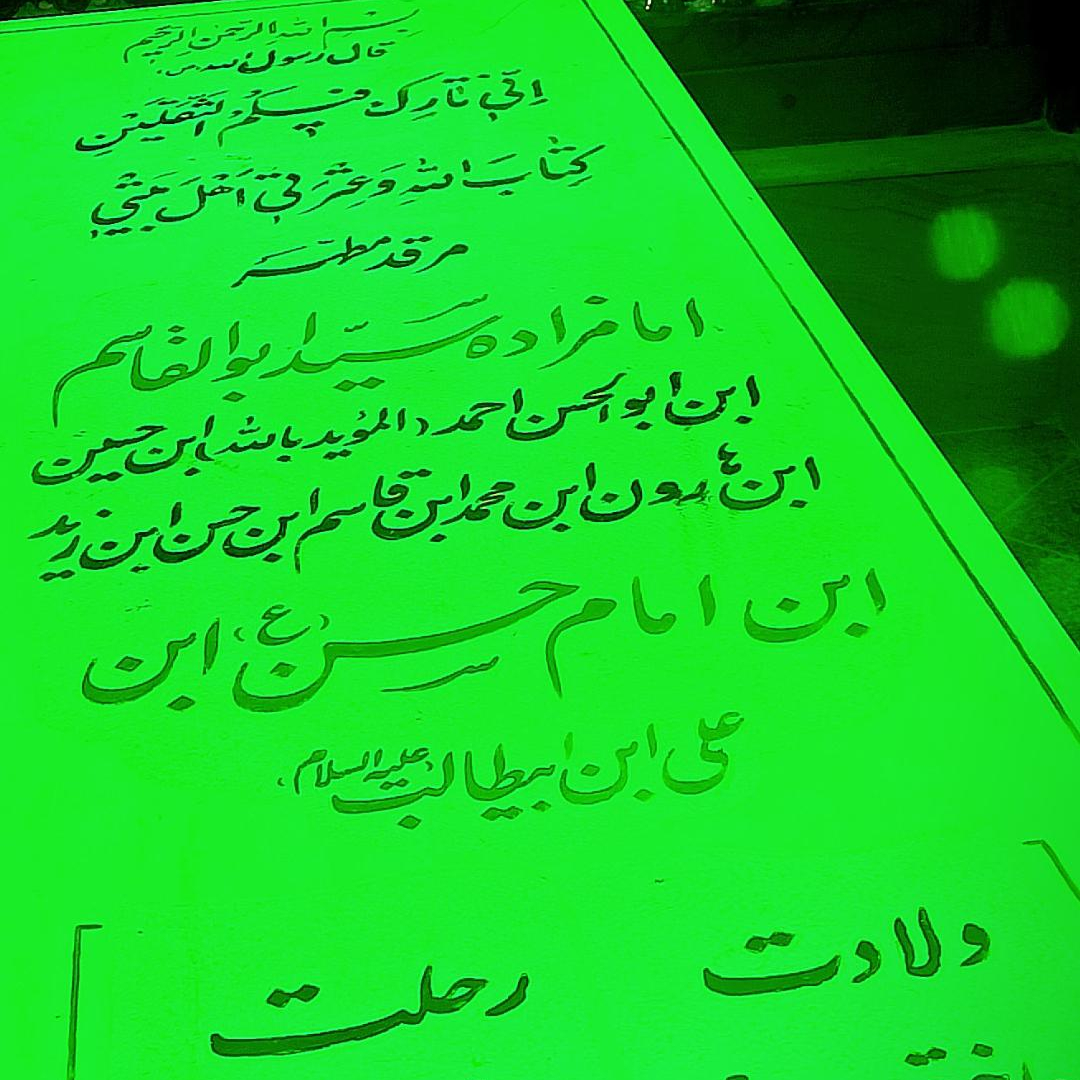 بسم الله الرحمن الرحیم
قال رسول الله ص
اِنّی تٰارِکٌ فیکُمُ الثَّقَلَیْنِ
کِتٰابَ اللهِ وَعِتْرَتی اَهْلَ بَیْتی
مرقد مطهر
امامزاده سیّد ابوالقاسم
ابن ابوالحسن احمد (المؤید بالله) ابن حسین
ابن هارون ابن محمد ابن قاسم ابن حسن ابن زید
ابن امام حسن (ع) ابن
علی ابن ابیطالب (علیه السلام)
ولادت
رحلت